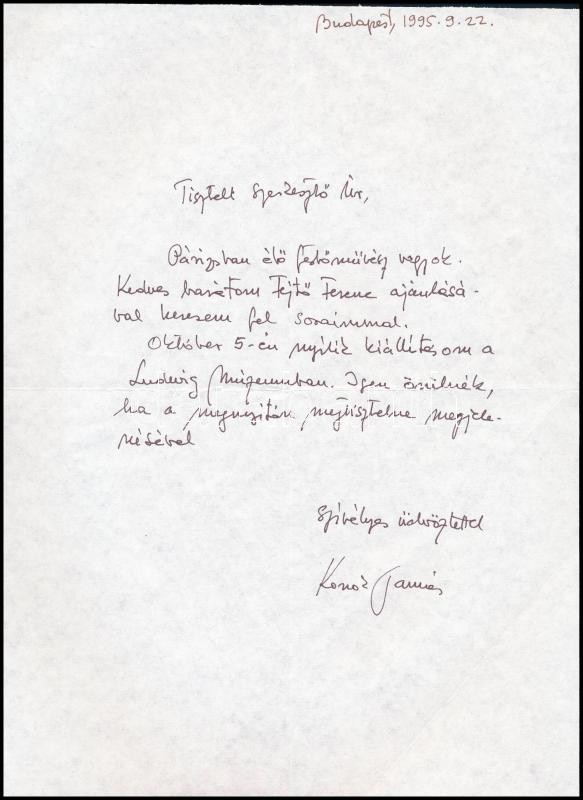 Budapest, 1995.9.22.
Tisztelt Szerkesztő Úr,
Párizsban élő festőművész vagyok.
Kedves barátom Fejtő Ferenc ajánlásá-
val keresem fel soraimmal.
Október 5-én nyílik kiállításom a
Ludwig Múzeumban. Igen örülnék,
ha a megnyitón megtisztelne megjele-
nésével
Szívélyes üdvözlettel
Konok Tamás